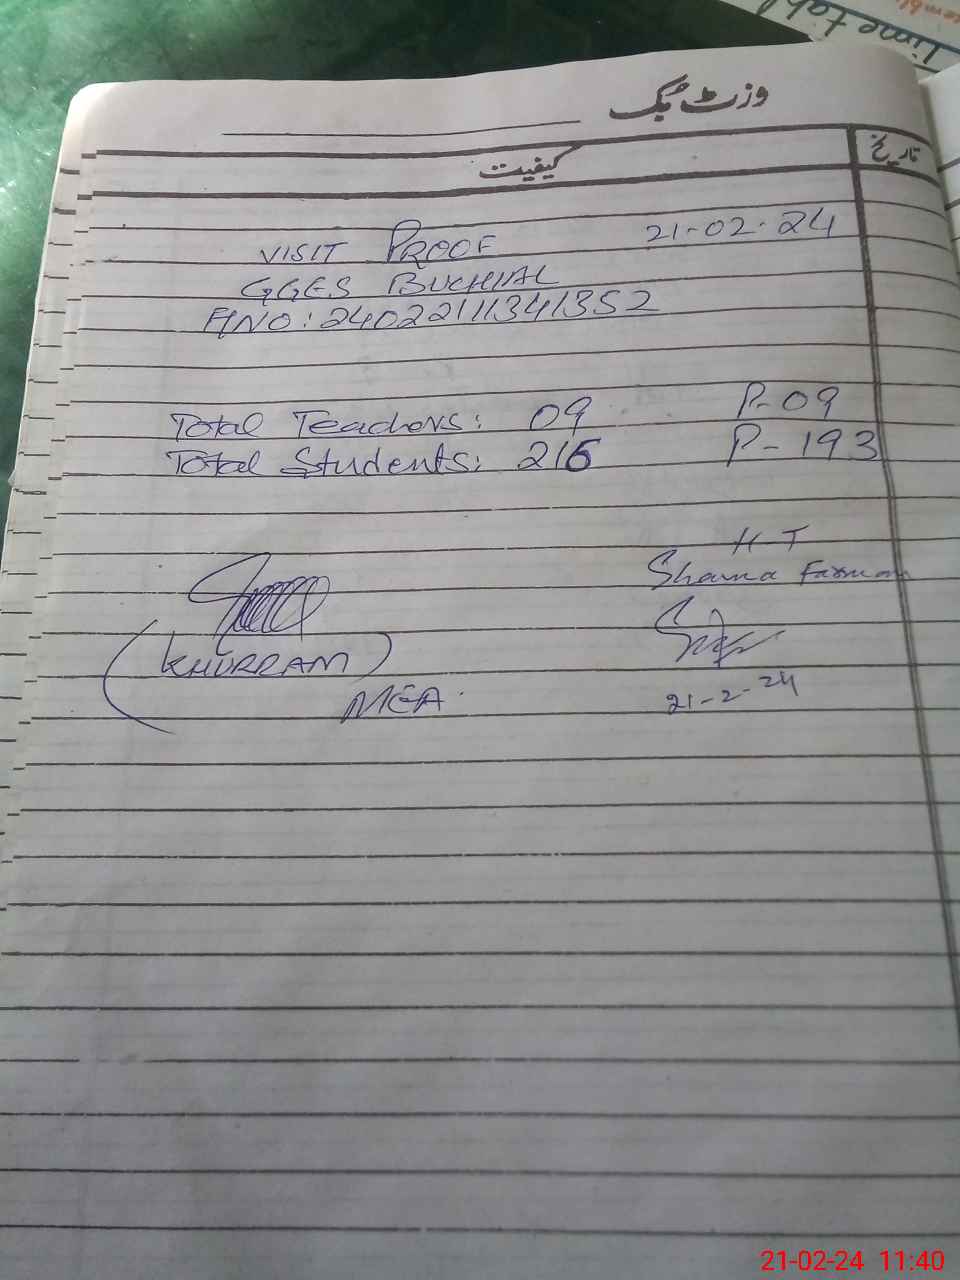 Time tabl
وزٹ بُک
کیفیت تاریخ
VISIT PROOF 21-02-24
GGES BUCHIAL
A/NO: 24022111341352
Total Teachers: 09 P-09
Total Students: 216 P-193
H T
Shama Farman
(KHURRAM)
MEA
21-2-24
21-02-24 11:40